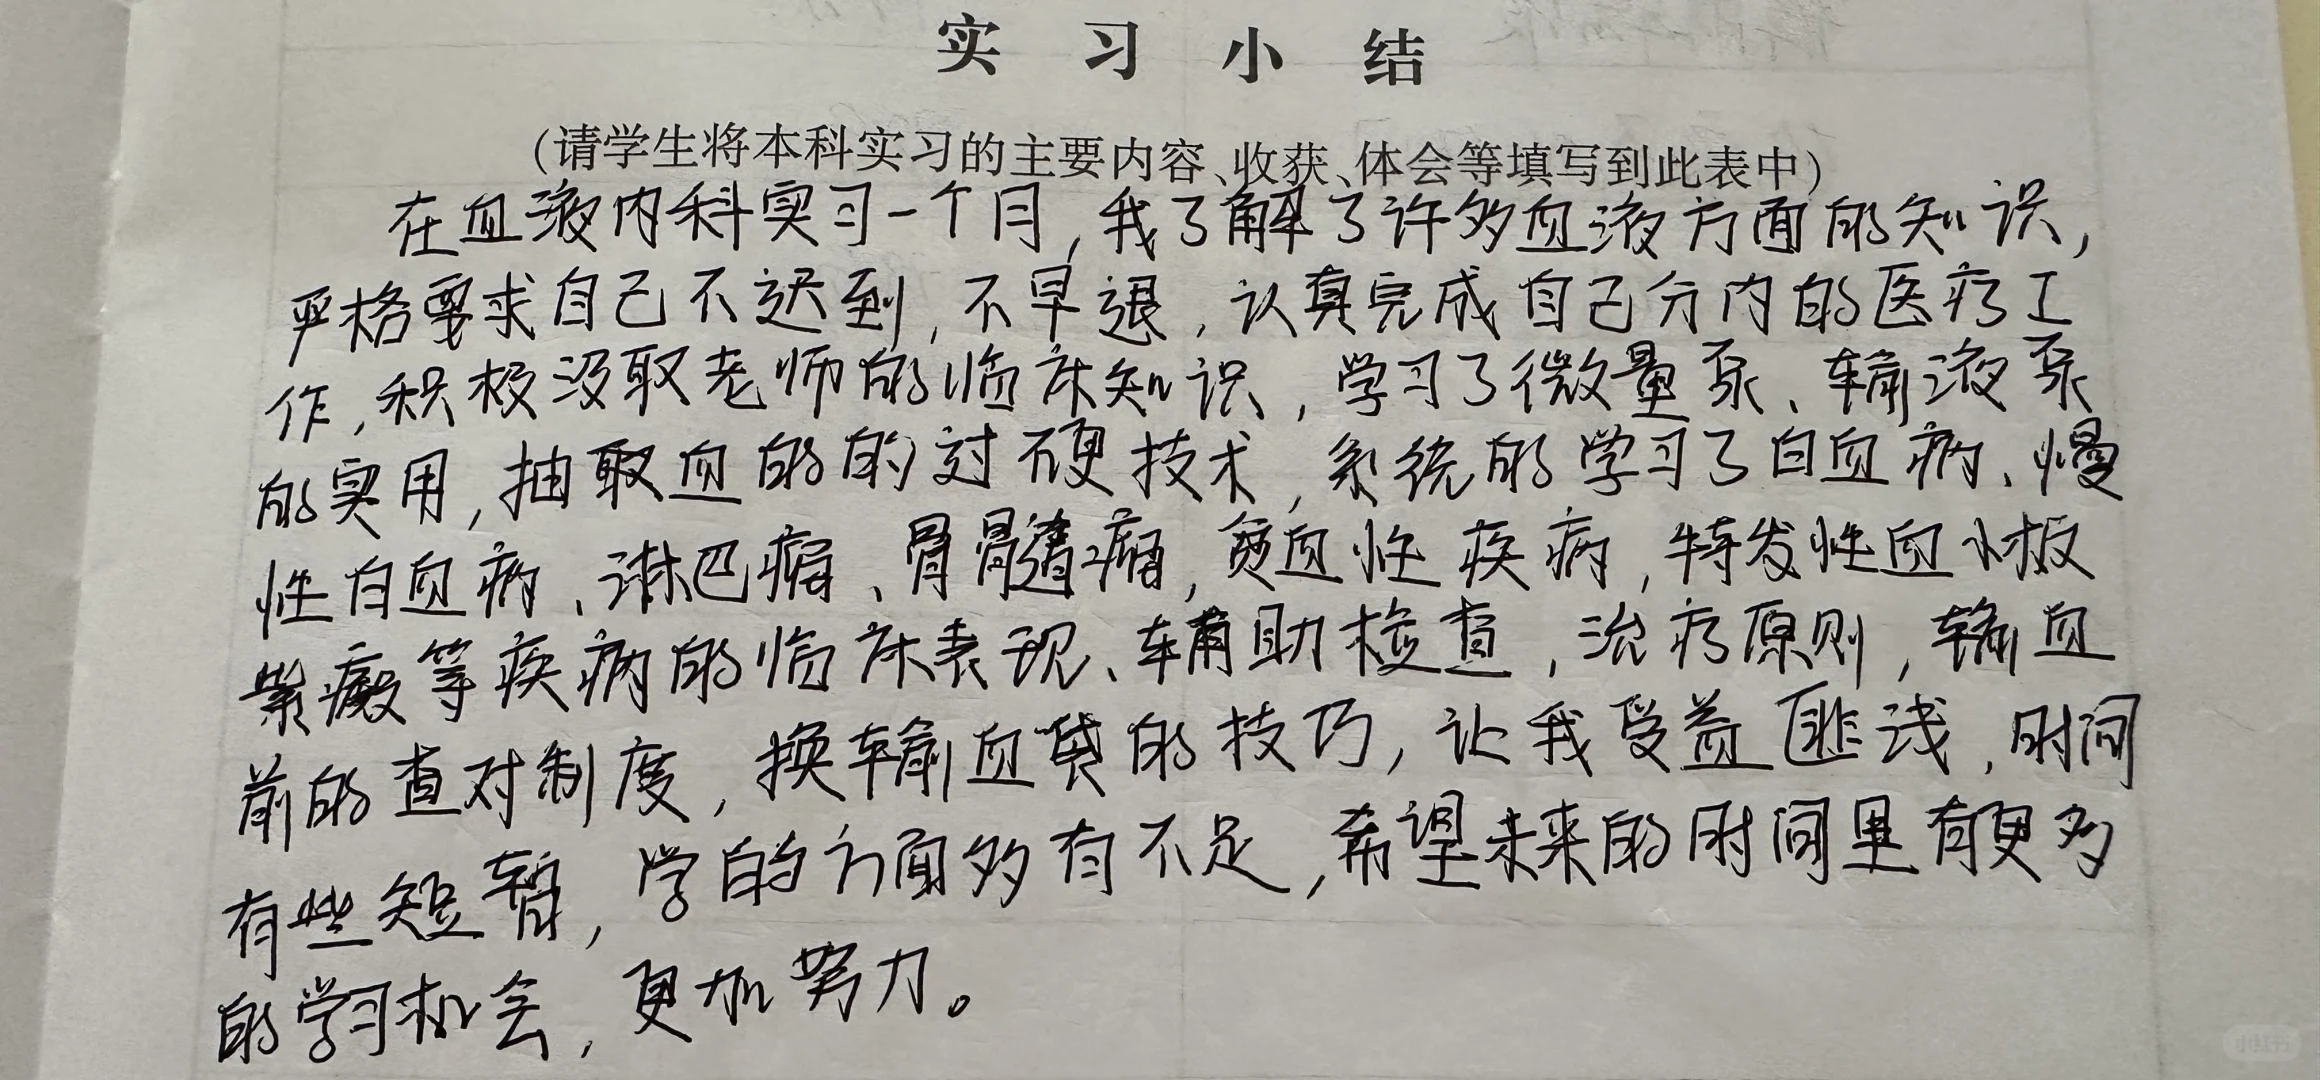 实习小结
(请学生将本科实习的主要内容、收获、体会等填写到此表中)
在血液内科实习一个月,我了解了许多血液方面的知识,
严格要求自己不迟到,不早退,认真完成自己分内的医疗工
作,积极汲取老师的临床知识,学习了微量泵、输液泵
的实用,抽取血的的过硬技术,系统的学习了白血病、慢
性白血病、淋巴瘤、骨髓瘤,贫血性疾病,特发性血小板
紫癜等疾病的临床表现、辅助检查,治疗原则,输血
前的查对制度,换输血袋的技巧,让我受益匪浅,时间
有些短暂,学的方面多有不足,希望未来的时间里有更多
的学习机会,更加努力。
小红书